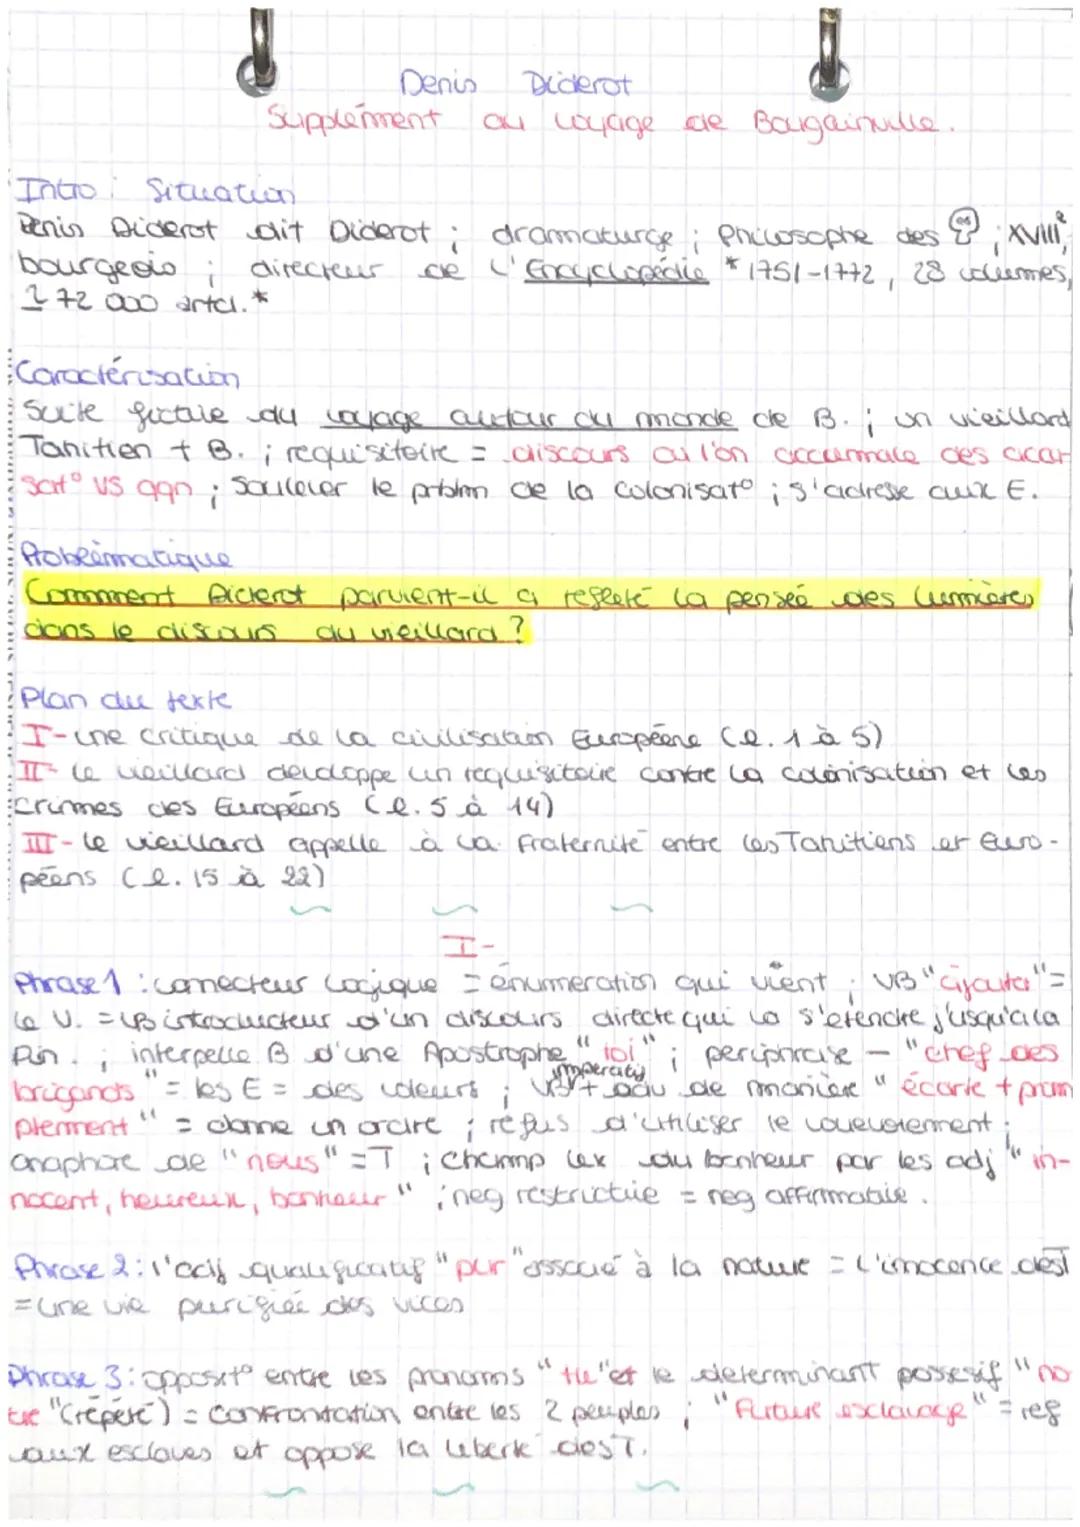 Denis Diderot
Supplément au voyage de Bougainville.
Intro : Situation
Denis Diderot dit Diderot ; dramaturge ; philosophe des ; XVIIIe,
bourgeois ; directeur de l'Encyclopédie * 1751-1772, 28 volumes,
72 000 artcl.*
Caractérisation
Suite fictive du voyage autour du monde de B. ; un vieillard
Tahitien + B. ; requisitoire = discours où l'on accumule des accu
sat° VS qqn ; Soulever le problm de la colonisat° ; s'adresse aux E.
Problématique
Comment Diderot parvient-il a refleté la pensée des Lumières
dans le discours du vieillard ?
Plan du texte
I- une critique de la civilisation Européene (l. 1 à 5)
II- le vieillard developpe un requisitoire contre la colonisation et les
crimes des Européens (l. 5 à 14)
III- le vieillard appelle à la fraternité entre les Tahitiens et Euro-
péens (l. 15 à 22)
I-
Phrase 1 : connecteur logique = énumeration qui vient ; VB "ajouter" =
le V. = VB introducteur d'un discours directe qui va s'etendre j'usqu'a la
fin. ; interpelle B d'une Apostrophe "toi" ; periphrase - "chef des
brigands" = les E = des voleurs ; VB imperatif + adv de manière "écarte + prom
ptement" = donne un ordre ; refus d'utiliser le vouvoiement ;
anaphore de "nous" = T ; champ lex du bonheur par les adj "in-
nocent, heureux, bonheur" ; neg restrictive = neg affirmative.
Phrase 2 : l'adj qualificatif "pur" associé à la nature = l'innocence des T
= une vie purifiée des vices
Phrase 3 : opposit° entre les pronoms "tu" et le determinant possesif "no
tre" (répété) = confrontation entre les 2 peuples ; "Future esclavage" = ref
aux esclaves et oppose la liberté des T.